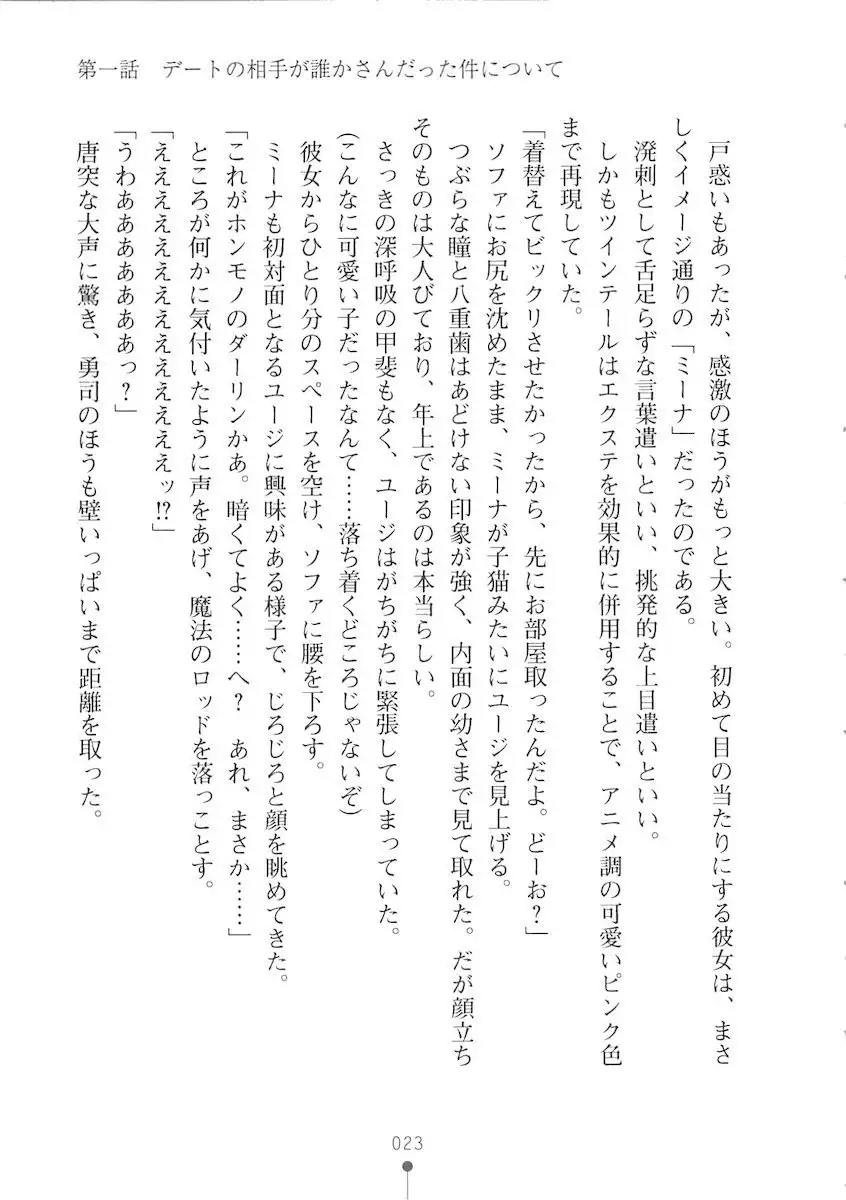 第一話　デートの相手が誰かさんだった件について
　戸惑いもあったが、感激のほうがもっと大きい。初めて目の当たりにする彼女は、まさ
しくイメージ通りの「ミーナ」だったのである。
　溌剌として舌足らずな言葉遣いといい、挑発的な上目遣いといい。
　しかもツインテールはエクステを効果的に併用することで、アニメ調の可愛いピンク色
まで再現していた。
「着替えてビックリさせたかったから、先にお部屋取ったんだよ。どーお？」
　ソファにお尻を沈めたまま、ミーナが子猫みたいにユージを見上げる。
　つぶらな瞳と八重歯はあどけない印象が強く、内面の幼さまで見て取れた。だが顔立ち
そのものは大人びており、年上であるのは本当らしい。
　さっきの深呼吸の甲斐もなく、ユージはがちがちに緊張してしまっていた。
（こんなに可愛い子だったなんて……落ち着くどころじゃないぞ）
　彼女からひとり分のスペースを空け、ソファに腰を下ろす。
　ミーナも初対面となるユージに興味がある様子で、じろじろと顔を眺めてきた。
「これがホンモノのダーリンかあ。暗くてよく……へ？　あれ、まさか……」
　ところが何かに気付いたように声をあげ、魔法のロッドを落っことす。
「えええええええええええええッ!?」
「うわあああああああっ？」
　唐突な大声に驚き、勇司のほうも壁いっぱいまで距離を取った。
023